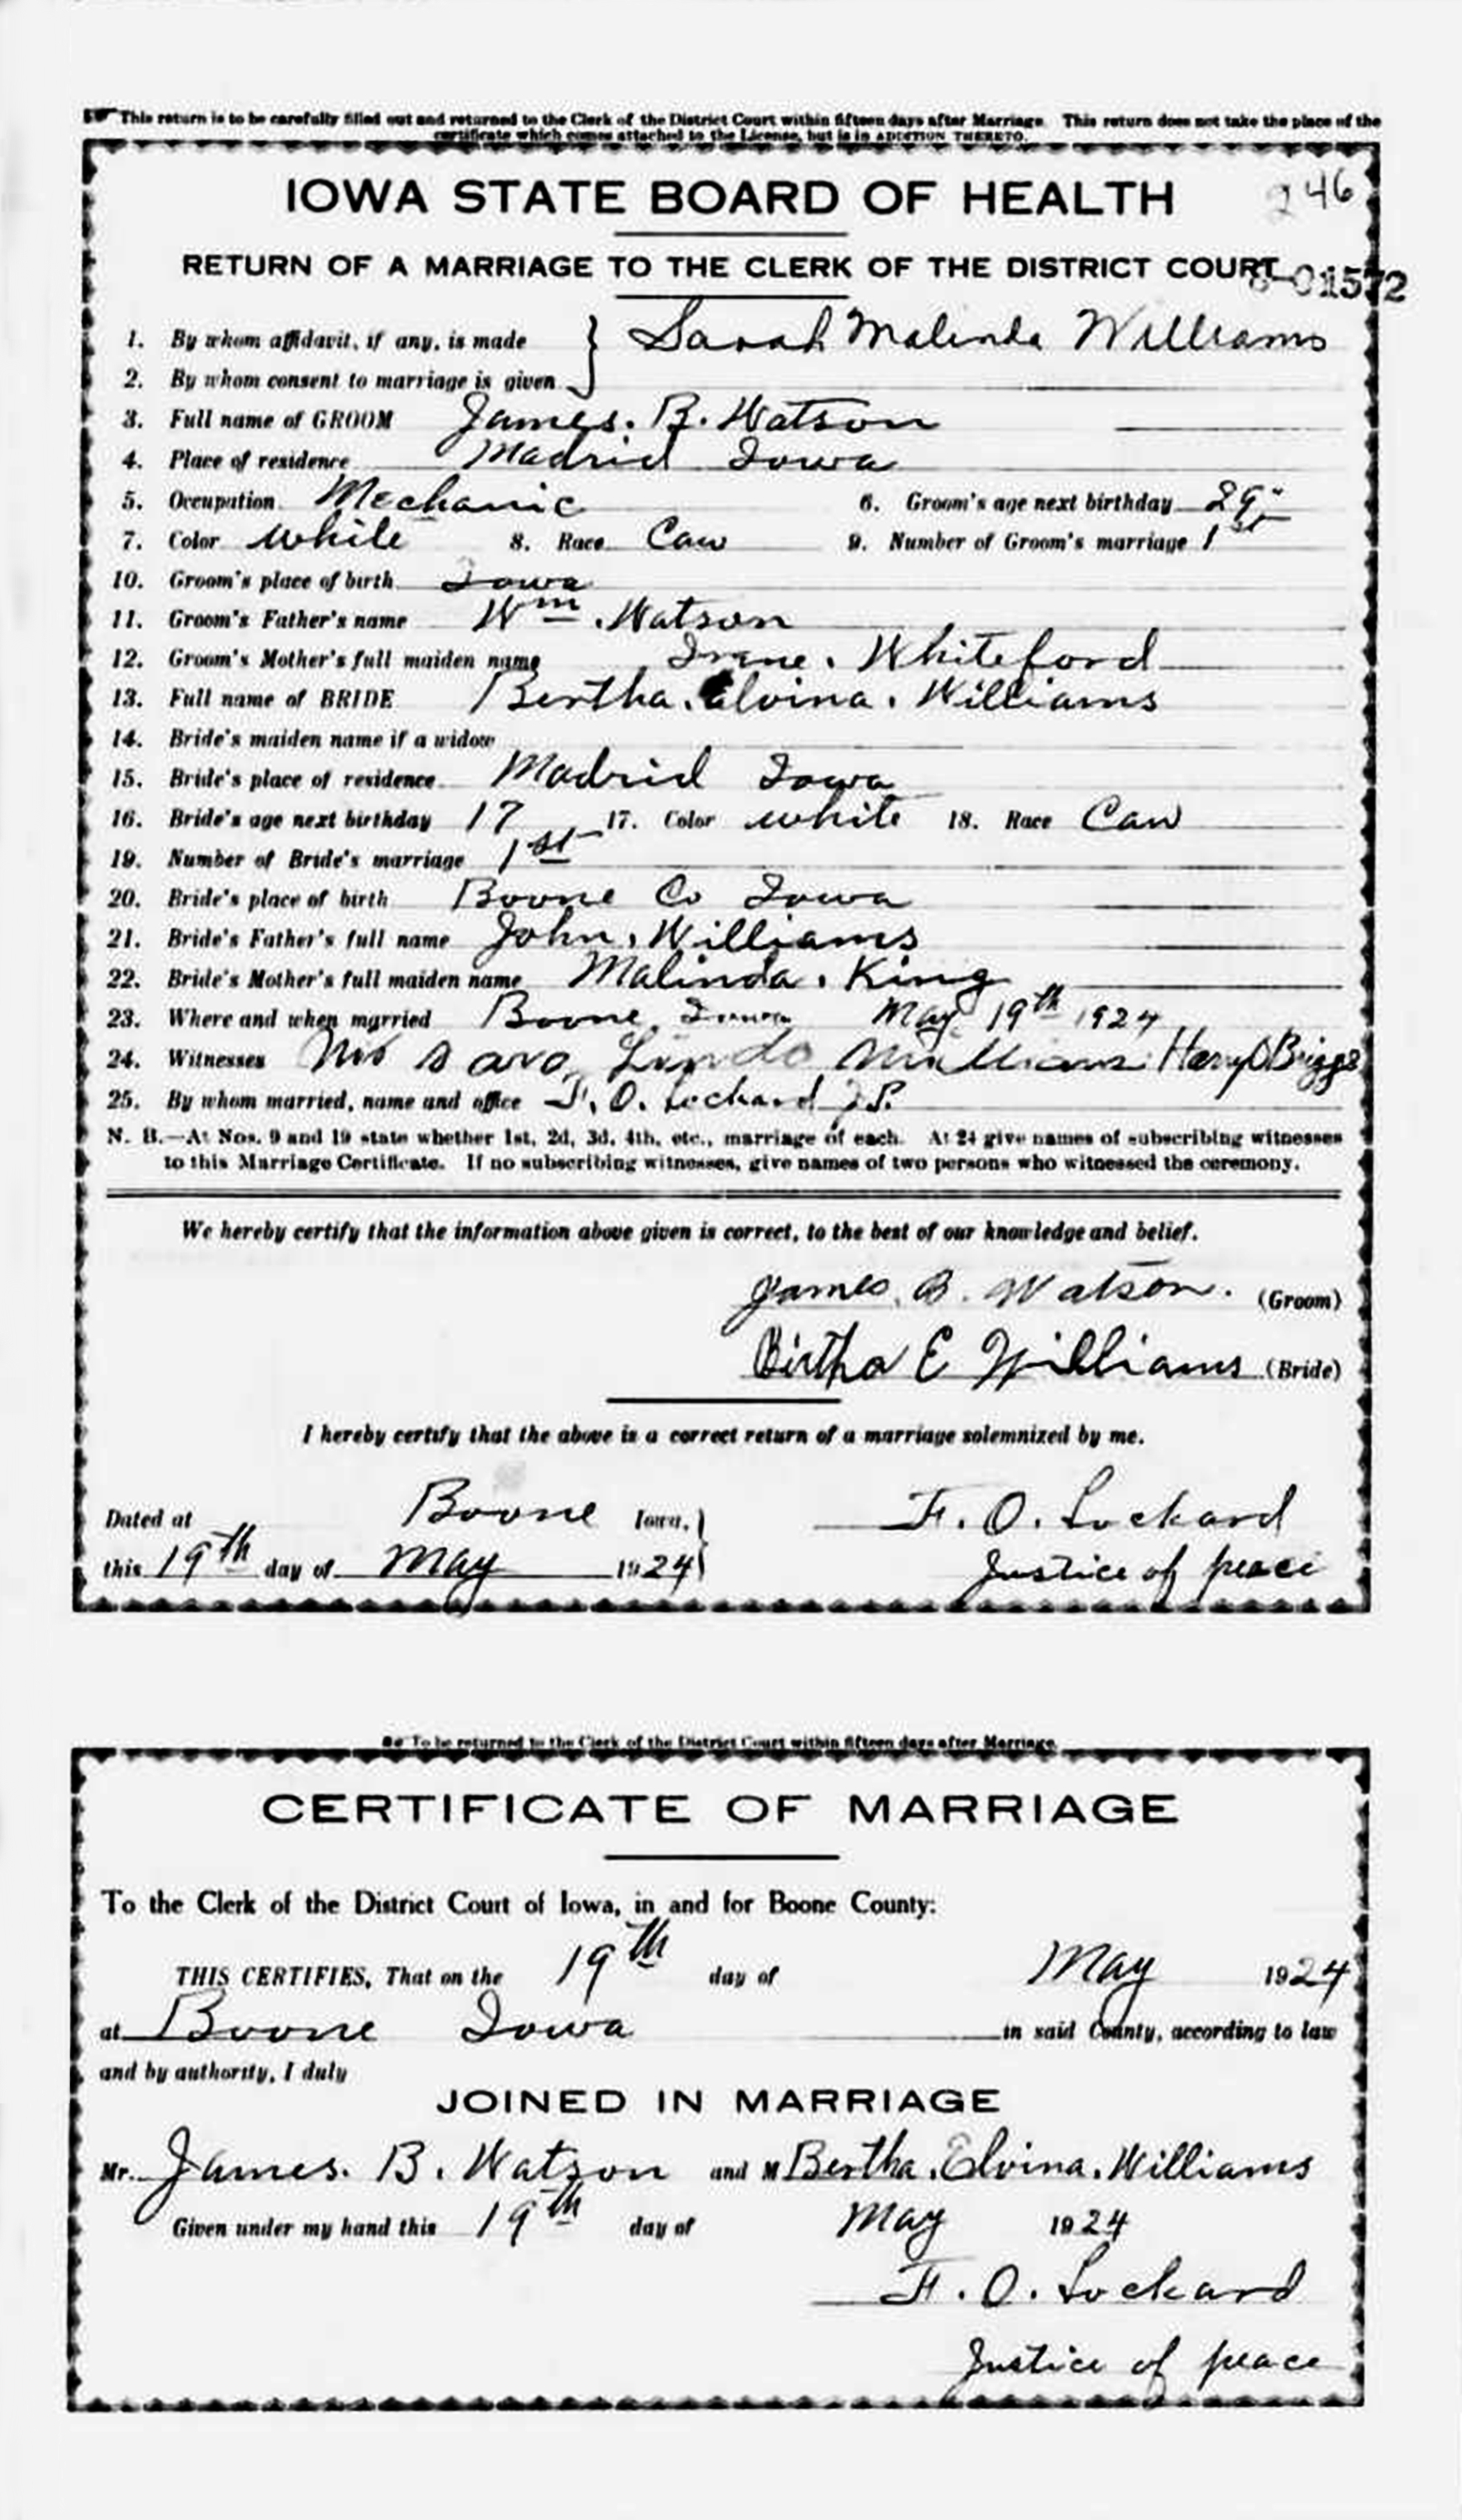 This return is to be carefully filled out and returned to the Clerk of the District Court within fifteen days after Marriage. This return does not take the place of the
certificate which comes attached to the License, but is in ADDITION THERETO.
IOWA STATE BOARD OF HEALTH 246
RETURN OF A MARRIAGE TO THE CLERK OF THE DISTRICT COURT
-01572
1. By whom affidavit, if any, is made } Sarah Malinda Williams
2. By whom consent to marriage is given
3. Full name of GROOM James. B. Watson
4. Place of residence Madrid Iowa
5. Occupation Mechanic 6. Groom's age next birthday 29
7. Color white 8. Race Caw 9. Number of Groom's marriage 1st
10. Groom's place of birth Iowa
11. Groom's Father's name Wm. Watson
12. Groom's Mother's full maiden name Irene. Whiteford
13. Full name of BRIDE Bertha. Elvina. Williams
14. Bride's maiden name if a widow
15. Bride's place of residence Madrid Iowa
16. Bride's age next birthday 17 17. Color white 18. Race Caw
19. Number of Bride's marriage 1st
20. Bride's place of birth Boone Co Iowa
21. Bride's Father's full name John. Williams
22. Bride's Mother's full maiden name Malinda. King
23. Where and when married Boone, Iowa May 19th 1924
24. Witnesses Mrs Sara Harry Briggs
25. By whom married, name and office F. O. Lockard J.P.
N. B.—At Nos. 9 and 19 state whether 1st, 2d, 3d, 4th, etc., marriage of each. At 24 give names of subscribing witnesses
to this Marriage Certificate. If no subscribing witnesses, give names of two persons who witnessed the ceremony.
We hereby certify that the information above given is correct, to the best of our knowledge and belief.
James. B. Watson. (Groom)
Birtha E Williams (Bride)
I hereby certify that the above is a correct return of a marriage solemnized by me.
Dated at Boone Iowa, } F. O. Lockard
this 19th day of May 1924 } Justice of peace
To be returned to the Clerk of the District Court within fifteen days after Marriage
CERTIFICATE OF MARRIAGE
To the Clerk of the District Court of Iowa, in and for Boone County:
THIS CERTIFIES, That on the 19th day of May 1924
at Boone Iowa in said County, according to law
and by authority, I duly
JOINED IN MARRIAGE
Mr. James. B. Watson and M Bertha. Elvina. Williams
Given under my hand this 19th day of May 1924
F. O. Lockard
Justice of peace